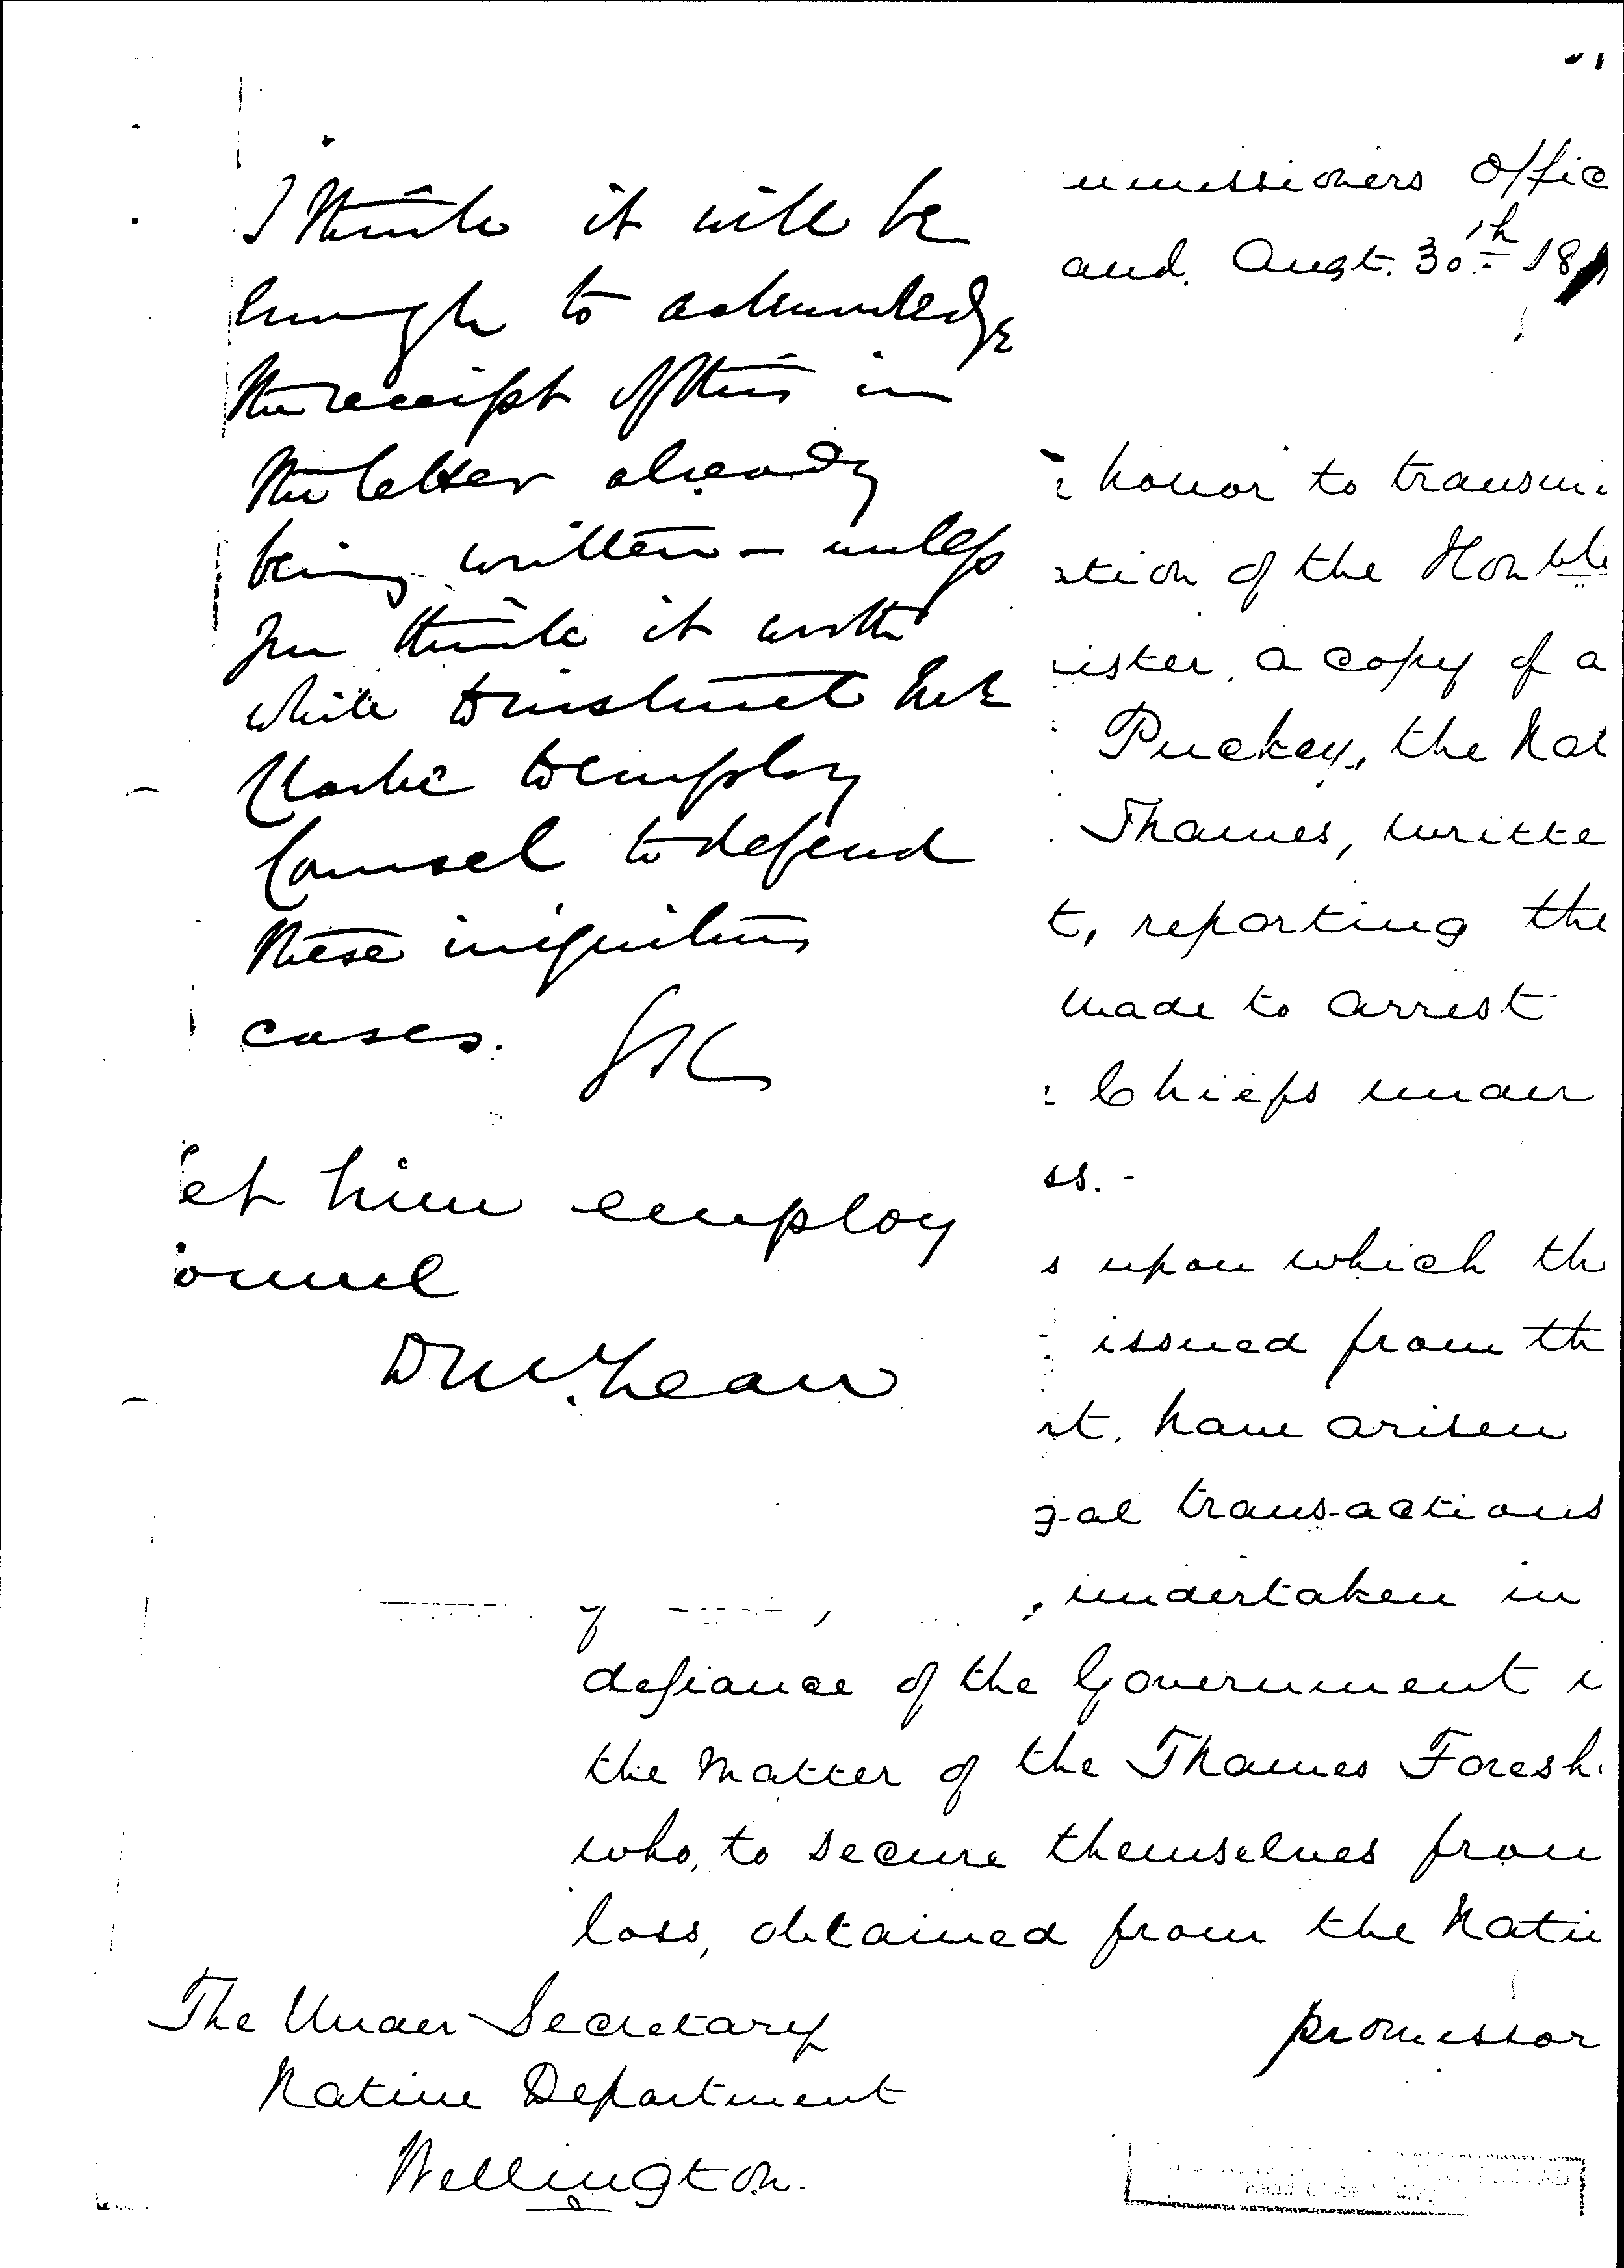 I think it will be
enough to acknowledge
the receipt of this in
the letter already
being written – unless
you think it worth
while to instruct
to employ
Counsel to defend
these iniquitous
cases.
et him employ
ounsel
D McLean
mmissioners Offic
and. Augt. 30th 18
honor to transmi
ation of the Honble
ister, a copy of a
Puckey, the Nat
Thames, writte
t, reporting the
made to arrest
Chiefs under
ss. -
s upon which th
issued from th
rt, have arisen
gal transactions
undertaken in
defiance of the Government i
the matter of the Thames Foresh
who, to secure themselves from
loss, obtained from the Nativ
promissor
The Under Secretary
Native Department
Wellington.